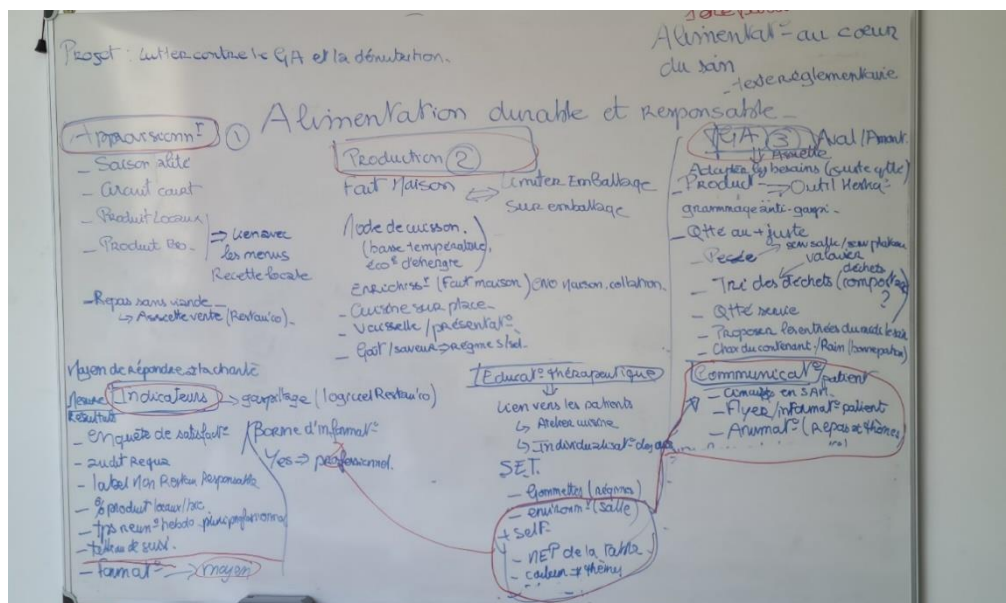 Projet : Lutter contre le GA et la dénutrition.
Alimentat° au coeur
du soin
texte réglementaire
Alimentation durable et Responsable
Approvisionnt ①
- Saisonalité
- Circuit court
- Produit Locaux
- Produit Bio.
⇒ Lien avec
les menus
Recette locale
- Repas sans viande
↳ Assiette verte (Restau'co).
Production ②
Fait Maison ⇔ Limiter Emballage
Sur emballage
Mode de cuisson.
(basse température,
éco° d'énergie)
Enrichisst (Fait maison) CNO Maison. collation.
- Cuisine sur place
- Vaisselle / présentat°
- Goût / saveur ⇒ régime s/sel.
GA ③ Aval / Amont
Assiette
Adapter les besoins (juste qtté)
- Product° ⇒ Outil
grammage anti-gaspi.
- Qtté au + juste
- Pesée
valoriser
déchets
- Tri des déchets (compostage)
?
- Qtté servie
- Proposer les entrées du midi le soir
- Choix du contenant / Pain (bonne portion)
Moyen de répondre à la charte
Mesure
Résultat
Indicateurs ⇒ gaspillage (logiciel Restau'co)
- enquête de satisfact°
- audit Repas
- label Mon Restau Responsable
- % produit locaux/bio
- tps reun° hebdo pluriprofessionnel
- tableau de suivi.
- format° → moyen
Borne d'informat°
Yes ⇒ professionnel.
Educat° thérapeutique
Lien vers les patients
↳ Atelier cuisine
↳ Individualisat° des
SET.
- Gommettes (régimes)
- environnt (salle)
+ Self
- MEP de la Table
- couleur → thèmes
Communicat° / patient
- en SAM
- Flyer / informat° patient
- Animat° (Repas à thèmes